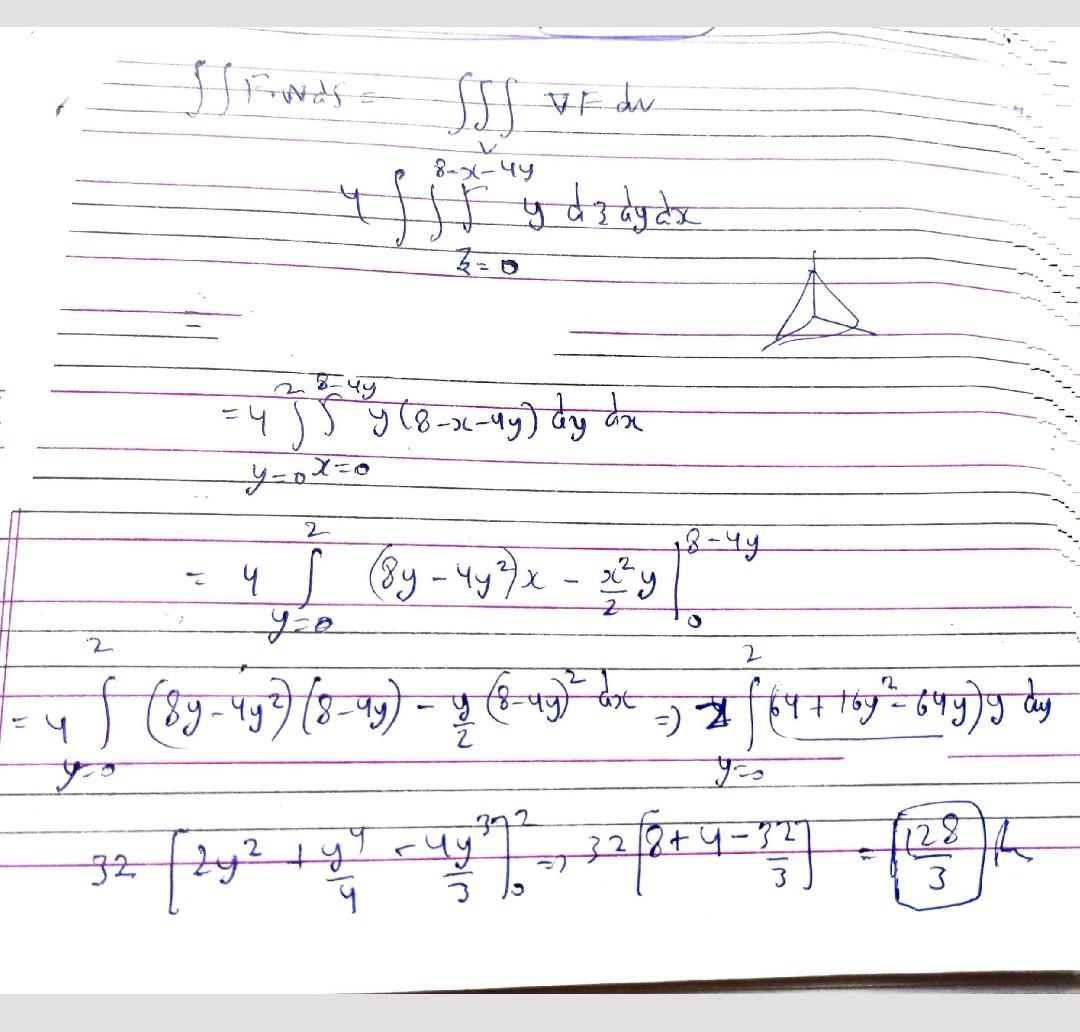 ∬ F.N ds = ∭_V ∇F dv
4 ∫∫∫_{z=0}^{8-x-4y} y dz dy dx
=
= 4 ∫_{y=0}^{2} ∫_{x=0}^{8-4y} y(8-x-4y) dy dx
= 4 ∫_{y=0}^{2} (8y-4y²)x - x²/2 y |_0^{8-4y}
= 4 ∫_{y=0}^{2} (8y-4y²)(8-4y) - y/2 (8-4y)² dx => ∫_{y=0}^{2} (64+16y²-64y)y dy
32 [2y² + y⁴/4 - 4y³/3]_0^2 => 32 [8+4-32/3] = 128/3